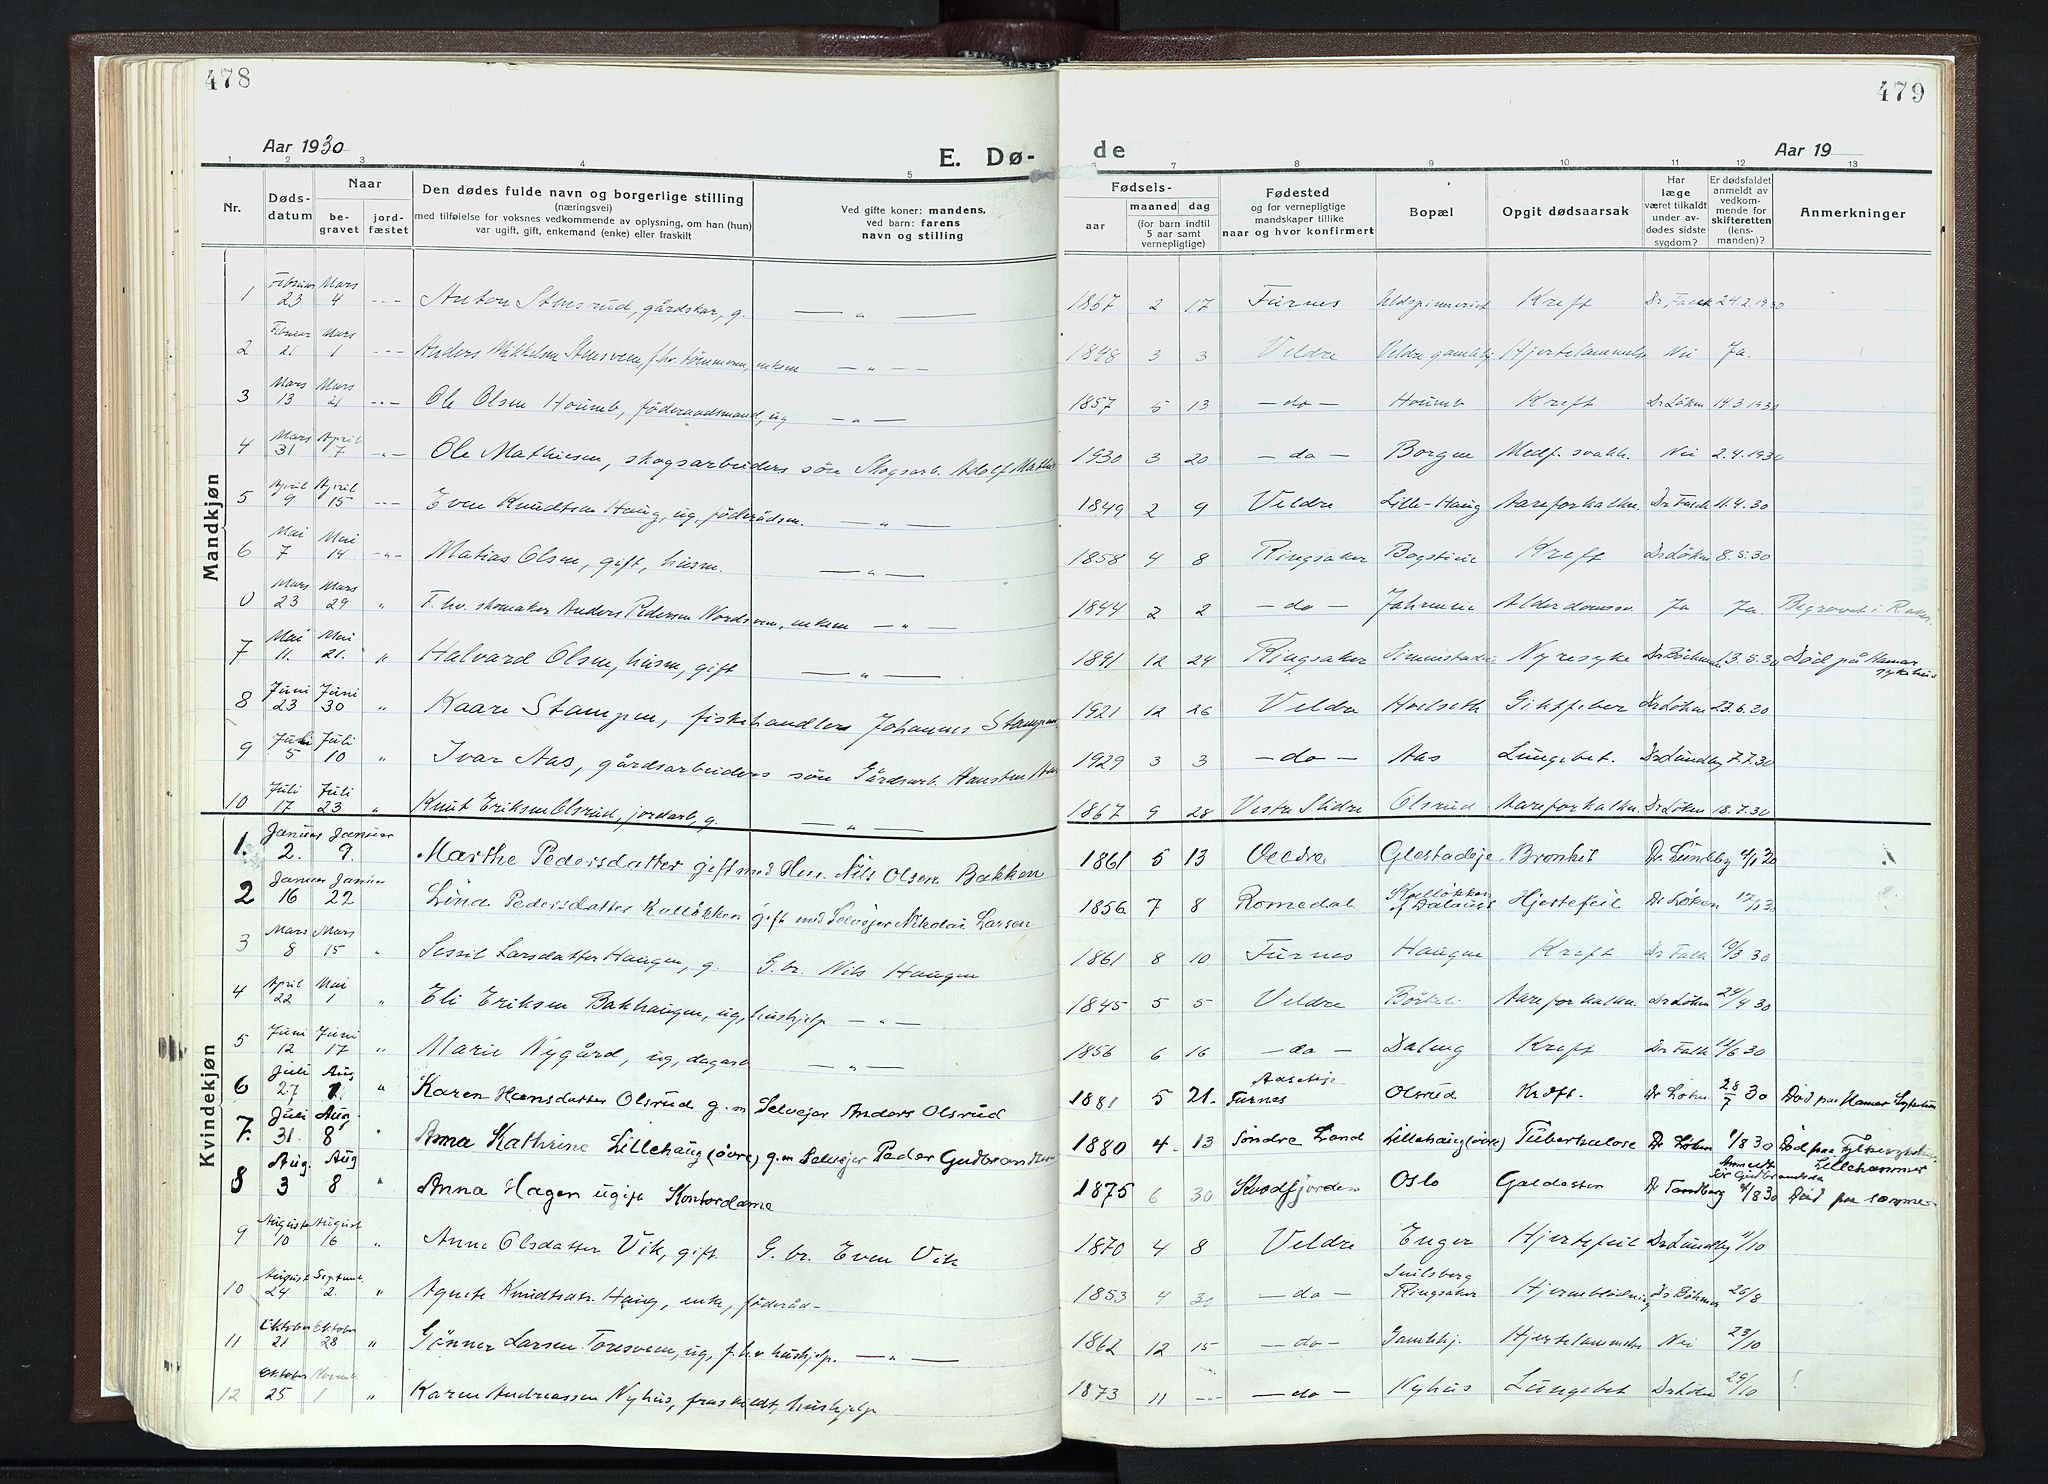 478
479
Aar 1930
E. Dø-
de
Aar 19
1 2 3 4 5 6 7 8 9 10 11 12 13
Nr.
Døds-
datum
Naar
be-
gravet
jord-
fæstet
Den dødes fulde navn og borgerlige stilling
(næringsvei)
med tilføielse for voksnes vedkommende av oplysning, om han (hun)
var ugift, gift, enkemand (enke) eller fraskilt
Ved gifte koner: mandens,
ved barn: farens
navn og stilling
Fødsels-
aar
maaned
dag
(for barn indtil
5 aar samt
vernepligtige)
Fødested
og for vernepligtige
mandskaper tillike
naar og hvor konfirmert
Bopæl
Opgit dødsaarsak
Har
læge
været tilkaldt
under av-
dødes sidste
sygdom?
Er dødsfaldet
anmeldt av
vedkom-
mende for
skifteretten
(lens-
manden)?
Anmerkninger
Mandkjøn
1 Februar 23 Mars 4 Anton Stensrud, gårdskar, g. 1867 2 17 Furnes Kreft Dr Falck 24.2.1930
2 Februar 21 Mars 1 Anders Mikkelsen Stensveen, f.hv. enkem 1848 3 3 Veldre Veldre gamlehj. Hjertelammelse Nei Ja.
3 Mars 13 Mars 21 Ole Olsen Houmb, föderaadsmand, ug 1857 5 13 do Houmb Kreft Dr Løken 14.3.1930
4 Mars 31 April 7 Ole Mathiesen, skogsarbeiders søn Skogsarb. Adolf 1930 3 20 do Borgen Medf. svakh. Nei 2.4.1930
5 April 9 April 15 Even Knudtsen Haug, ug, föderådsm. 1849 2 9 Veldre Lille-Haug Aareforkalkn. Dr Falck 11.4.30
6 Mai 7 Mai 14 Matias Olsen, gift, husm. 1858 4 8 Ringsaker Kreft Dr Løken 8.5.30
0 Mars 23 Mars 29 F. hv. skomaker Anders Pedersen Nordsveen, enkem 1844 2 2 do Alderdomssv. Ja Ja. Begravet i
7 Mai 11. Mai 21. Halvard Olsen, husm, gift 1891 12 24 Ringsaker Nyresyke 13.5.30 Død på Hamar
sykehus
8 Juni 23 Juni 30 Kaare Stampen, fiskehandlers Johannes Stampen 1921 12 26 Veldre Hoelseth Giktfeber Dr Løken 23.6.30
9 Juli 5 Juli 10 Ivar Aas, gårdsarbeiders søn Gårdsarb. 1929 3 3 do Aas Lungebet. Dr Lundby 7.7.30
10 Juli 17 Juli 23 Knut Eriksen Olsrud, jordarb, g. 1867 9 28 Vestre Slidre Olsrud Aareforkalkn. Dr Løken 18.7.30
Kvindekjøn
1. Januar 2. Januar 9. Marthe Pedersdatter gift med Hm. Nils Olsen Bakken 1861 5 13 Veldre Bronkit Dr. Lundby 4/1 30
2 Januar 16 Januar 22 Pedersdatter Kalløkken gift med Selvejer Nikolai Larsen 1856 7 8 Romedal Hjertefeil Dr Løken 17/1 30
3 Mars 8 Mars 15 Sessil Larsdatter Haugen, g. G. br. Nils Haugen 1861 8 10 Furnes Haugen Kreft Dr Falk 10/3 30
4 April 22 Mai 1 Eli Eriksen Bakhaugen, ug, hushjelp 1845 5 5 Veldre Aareforkalkn. Dr Løken 24/4 30
5 Juni 12 Juni 17 Marie Nygård, ug, dagarb 1856 6 16 do Kreft Dr Falk 12/6 30
6 Juli 27 Aug 1. Karen Hansdatter Olsrud g.m Selvejer Anders Olsrud 1881 5 21. Furnes Olsrud Kræft. Dr Løken 28/7 30 Død paa Hamar Sykehus
7. Juli 31. Aug. 8 Anna Kathrine Lillehaug (övre) g.m Selvejer Peder Gudbrandsen 1880 4. 13 Søndre Land Lillehaug (övre) Tuberkulose Dr Løken 1/8 30 Død paa
Lillehammer
8 Aug. 3 Aug 8 Anna Hagen ugift Kontordame 1875 6 30 Oslo Galdesten Dr Tandberg 4/8 30 Død paa samme
9 August 10 August 16 Anne Olsdatter Vik, gift. G. br. Even Vik 1870 4 8 Veldre Enger Hjertefeil Dr Lundby 11/10
10 August 24 Septemb. 2. Agnete Knudtsdr. Haug, enke, föderåd- 1853 4 30 do Ringsaker Hjerneblödning Dr Bøhmer 26/8
11 Oktober 21 Oktober 28 Gønner Larsen Toresveen, ug, f.h.v hushjelp. 1862 12 15 do Gamlehj. Hjertelammelse Nei 23/10
12 Oktober 25 Novemb. 1 Karen Andreassen Nyhus, fraskildt, hushjelp 1873 11 do Nyhus Lungebet Dr Løken 29/10